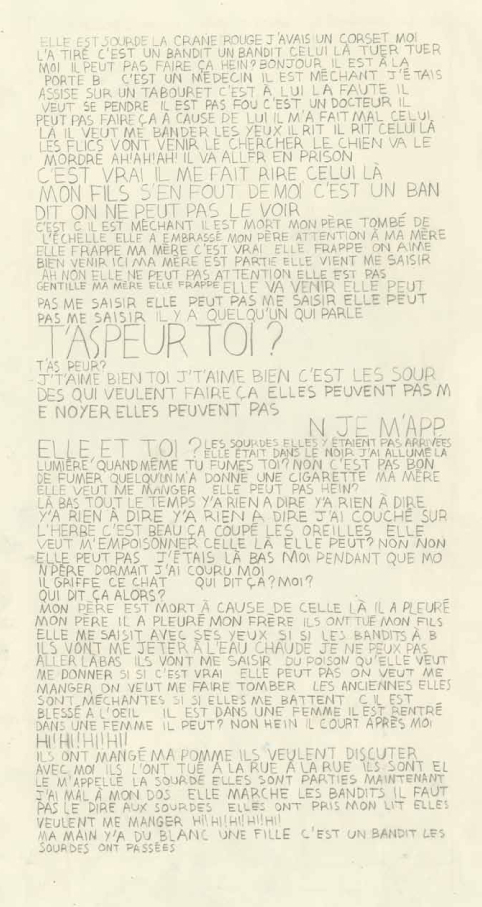 ELLE EST SOURDE LA CRANE ROUGE J'AVAIS UN CORSET MOI
L'A TIRÉ C'EST UN BANDIT UN BANDIT CELUI LÀ TUER TUER
MOI IL PEUT PAS FAIRE ÇA HEIN? BONJOUR IL EST À LA
PORTE B C'EST UN MÉDECIN IL EST MÉCHANT J'ÉTAIS
ASSISE SUR UN TABOURET C'EST À LUI LA FAUTE IL
VEUT SE PENDRE IL EST PAS FOU C'EST UN DOCTEUR IL
PEUT PAS FAIRE ÇA À CAUSE DE LUI IL M'A FAIT MAL CELUI
LÀ IL VEUT ME BANDER LES YEUX IL RIT IL RIT CELUI LÀ
LES FLICS VONT VENIR LE CHERCHER LE CHIEN VA LE
MORDRE AH!AH!AH! IL VA ALLER EN PRISON
C'EST VRAI IL ME FAIT RIRE CELUI LÀ
MON FILS S'EN FOUT DE MOI C'EST UN BAN
DIT ON NE PEUT PAS LE VOIR
C'EST C IL EST MÉCHANT IL EST MORT MON PÈRE TOMBÉ DE
L'ÉCHELLE ELLE A EMBRASSÉ MON PÈRE ATTENTION À MA MÈRE
ELLE FRAPPE MA MÈRE C'EST VRAI ELLE FRAPPE ON AIME
BIEN VENIR ICI MA MÈRE EST PARTIE ELLE VIENT ME SAISIR
AH NON ELLE NE PEUT PAS ATTENTION ELLE EST PAS
GENTILLE MA MÈRE ELLE FRAPPE ELLE VA VENIR ELLE PEUT
PAS ME SAISIR ELLE PEUT PAS ME SAISIR ELLE PEUT
PAS ME SAISIR IL Y A QUELQU'UN QUI PARLE
T'AS PEUR TOI?
T'AS PEUR?
J'T'AIME BIEN TOI J'T'AIME BIEN C'EST LES SOUR
DES QUI VEULENT FAIRE ÇA ELLES PEUVENT PAS M
E NOYER ELLES PEUVENT PAS
N JE M'APP
ELLE ET TOI? LES SOURDES ELLES Y ÉTAIENT PAS ARRIVÉES
ELLE ÉTAIT DANS LE NOIR J'AI ALLUMÉ LA
LUMIÈRE QUAND MÊME TU FUMES TOI? NON C'EST PAS BON
DE FUMER QUELQU'UN M'A DONNÉ UNE CIGARETTE MA MÈRE
ELLE VEUT ME MANGER ELLE PEUT PAS HEIN?
LÀ BAS TOUT LE TEMPS Y'A RIEN À DIRE Y'A RIEN À DIRE
Y'A RIEN À DIRE Y'A RIEN À DIRE J'AI COUCHÉ SUR
L'HERBE C'EST BEAU ÇA COUPÉ LES OREILLES ELLE
VEUT M'EMPOISONNER CELLE LÀ ELLE PEUT? NON NON
ELLE PEUT PAS J'ÉTAIS LÀ BAS MOI PENDANT QUE MO
N PÈRE DORMAIT J'AI COURU MOI
IL GRIFFE CE CHAT QUI DIT ÇA? MOI?
QUI DIT ÇA ALORS?
MON PÈRE EST MORT À CAUSE DE CELLE LÀ IL A PLEURÉ
MON PÈRE IL A PLEURÉ MON FRÈRE ILS ONT TUÉ MON FILS
ELLE ME SAISIT AVEC SES YEUX SI SI LES BANDITS À B
ILS VONT ME JETER À L'EAU CHAUDE JE NE PEUX PAS
ALLER LÀ BAS ILS VONT ME SAISIR DU POISON QU'ELLE VEUT
ME DONNER SI SI C'EST VRAI ELLE PEUT PAS ON VEUT ME
MANGER ON VEUT ME FAIRE TOMBER LES ANCIENNES ELLES
SONT MÉCHANTES SI SI ELLES ME BATTENT C IL EST
BLESSÉ À L'OEIL IL EST DANS UNE FEMME IL EST RENTRÉ
DANS UNE FEMME IL PEUT? NON HEIN IL COURT APRÈS MOI
HI!HI!HI!HI!
ILS ONT MANGÉ MA POMME ILS VEULENT DISCUTER
AVEC MOI ILS L'ONT TUÉ À LA RUE À LA RUE ILS SONT EL
LE M'APPELLE LA SOURDE ELLES SONT PARTIES MAINTENANT
J'AI MAL À MON DOS ELLE MARCHE LES BANDITS IL FAUT
PAS LE DIRE AUX SOURDES ELLES ONT PRIS MON LIT ELLES
VEULENT ME MANGER HI!HI!HI!HI!HI!
MA MAIN Y'A DU BLANC UNE FILLE C'EST UN BANDIT LES
SOURDES ONT PASSÉES